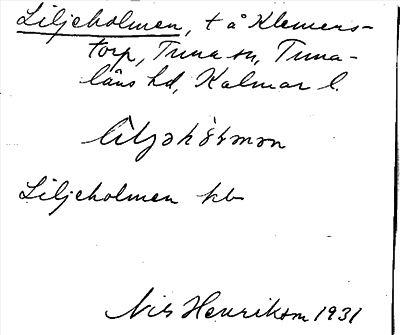 Liljeholmen, t å Klemers-
torp, Tuna sn, Tuna-
läns hd, Kalmar l.
Liljeholmen kb
Nils Henrikson 1931